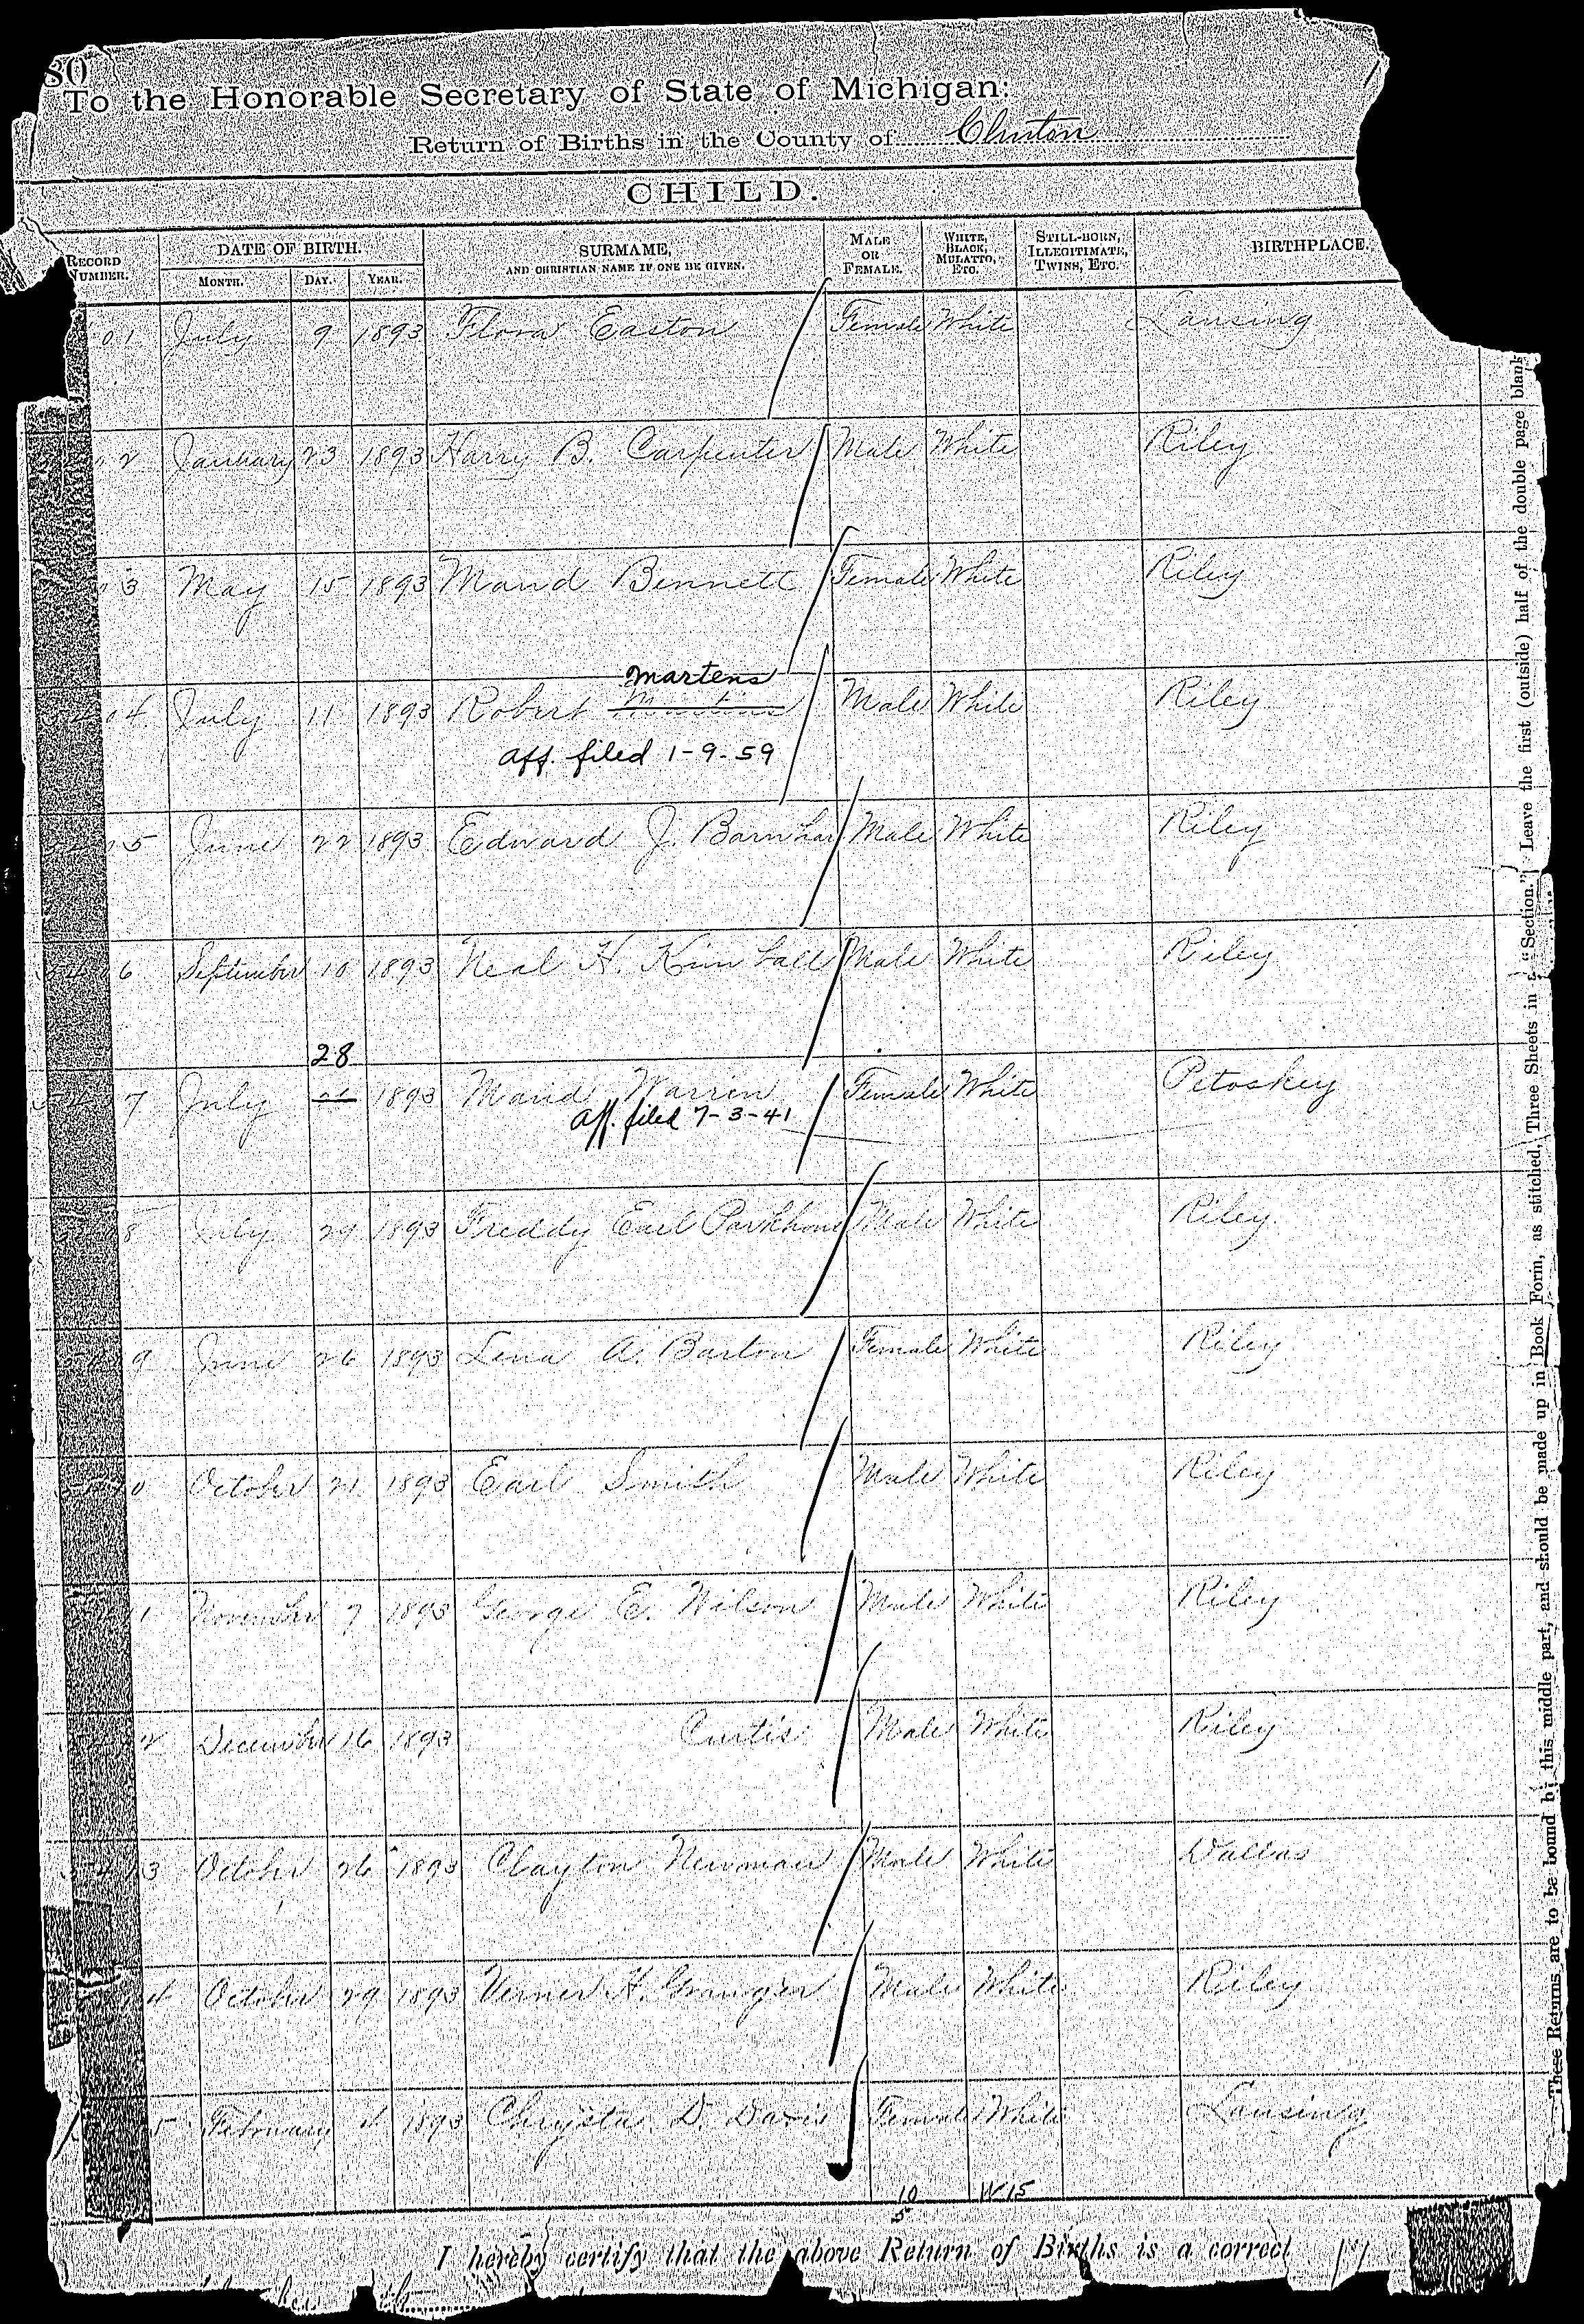 80
To the Honorable Secretary of State of Michigan:
Return of Births in the County of Clinton
CHILD.
RECORD NUMBER. DATE OF BIRTH. MONTH. DAY. YEAR. SURMAME, AND CHRISTIAN NAME IF ONE BE GIVEN. MALE OR FEMALE. WHITE, BLACK, MULATTO, ETC. STILL-BORN, ILLEGITIMATE, TWINS, ETC. BIRTHPLACE.
01 July 9 1893 Flora Easton Female White Lansing
2 January 23 1893 Harry B. Carpenter Male White Riley
3 May 15 1893 Maud Bennett Female White Riley
Martens
04 July 11 1893 Robert Male White Riley
aff. filed 1-9-59
5 June 22 1893 Edward J. Barnhar Male White Riley
6 September 10 1893 Neal H. Kimball Male White Riley
28
7 July 1893 Maud Warren Female White Petoskey
aff. filed 7-3-41
8 July 29 1893 Freddy Earl Male White Riley
9 June 26 1893 Lena A. Barton Female White Riley
10 October 21 1893 Earl Smith Male White Riley
11 November 7 1893 George E. Wilson Male White Riley
2 December 16 1893 Curtis Male White Riley
13 October 26 1893 Clayton Newman Male White Dallas
14 October 29 1893 Verner H. Granger Male White Riley
5 February 1893 Chrysta D. Davis Female White Lansing
10 W 15
5
I hereby certify that the above Return of Births is a correct
These Returns are to be bound by this middle part, and should be made up in Book Form, as stitched, Three Sheets in a "Section." Leave the first (outside) half of the double page blank